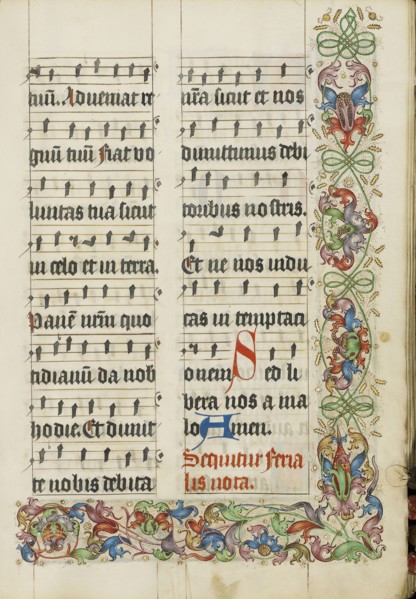 tuū. Adueniat re
gnū tuū Fiat vo
luntas tua sicut
in celo et in terra.
Panē nr̄m quo
tidianū da nob
hodie. Et dimit
te nobis debita
nr̄a sicut et nos
dimittimus debi
toribus nostris.
Et ne nos indu
cas in temptaci
onem Sed li
bera nos a ma
lo Amen.
Sequitur feria
lis nota.